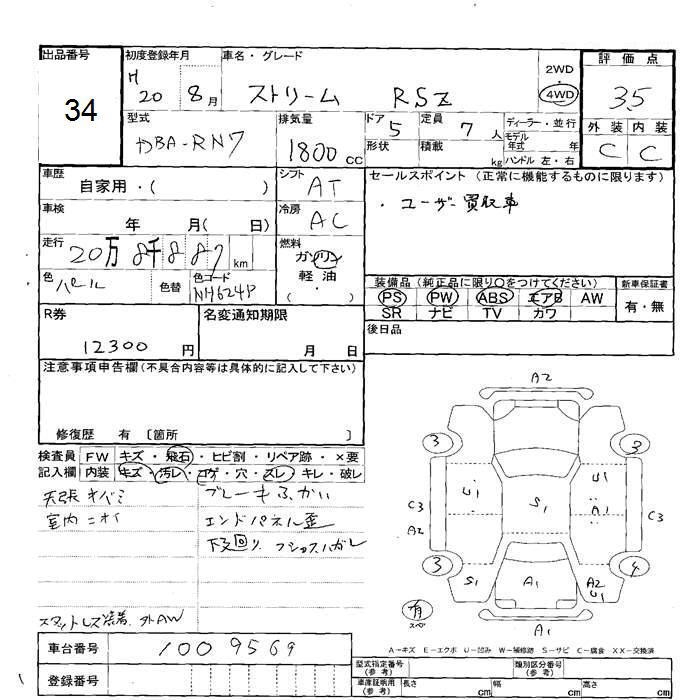 出品番号
34
初度登録年月
H 20 8月
車名・グレード
ストリーム RSZ
2WD
・
4WD
評価点
3.5
外装 内装
C C
型式
DBA-RN7
排気量
1800 CC
ドア
5
形状
定員
7 人
積載
kg
ディーラー・並行
モデル年式 年
ハンドル 左・右
車歴
自家用・( )
シフト
AT
車検
年 月( 日)
冷房
AC
走行
20万8千887 km
燃料
ガソリン
軽油
( )
色
パール
色替
色コード
NH624P
セールスポイント (正常に機能するものに限ります)
・ユーザー買取車
装備品 (純正品に限り○をつけてください)
PS PW ABS エアB AW
SR ナビ TV カワ
新車保証書
有・無
R券
12300 円
名変通知期限
月 日
後日品
注意事項申告欄(不具合内容等は具体的に記入して下さい)
修復歴 有 〔箇所 〕
検査員記入欄
FW キズ・飛石・ヒビ割・リペア跡・×要
内装 キズ・汚レ・コゲ・穴・スレ・キレ・破レ
室内ニオイ
エンドパネル歪
下回り
スタットレス装着 外AW
A2
3 3
U1 U1
C3 S1 A1 C3
A2
3 4
S1 A1 A2
U1
有
スペア
A1
A→キズ E→エクボ U→凹み W→補修跡 S→サビ C→腐食 XX→交換済
車台番号
1009569
登録番号
型式指定番号
(参考)
類別区分番号
(参考)
車庫証明用
(参考)
長さ cm 幅 cm 高さ cm